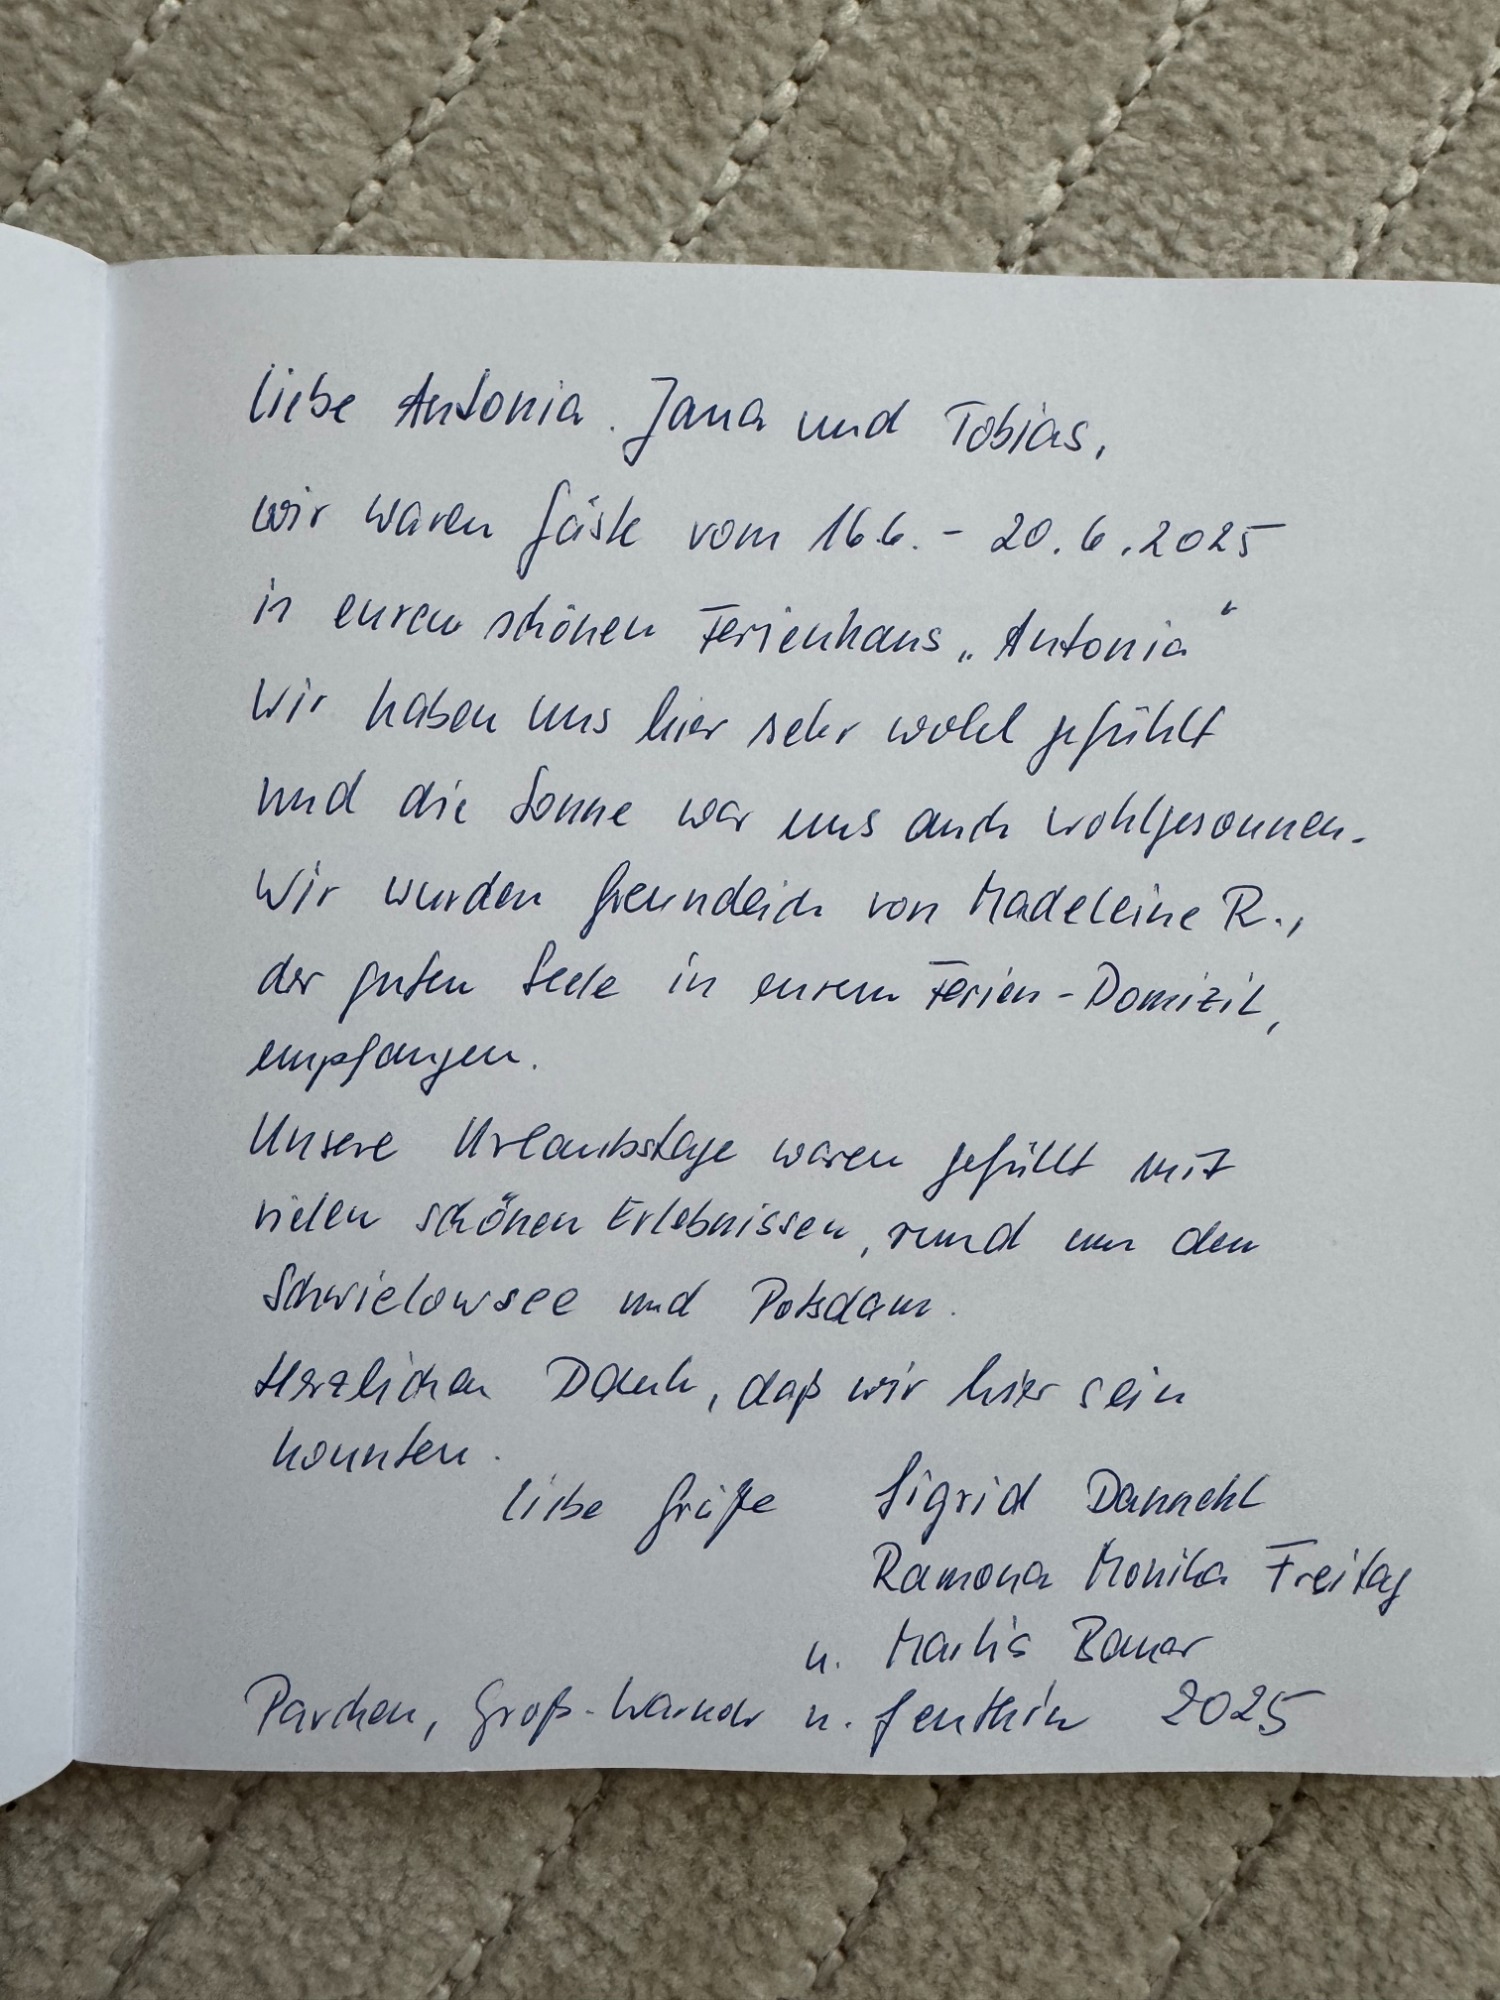 Liebe Antonia, Jana und Tobias,
wir waren Gäste vom 16.6. - 20.6.2025
in eurem schönen Ferienhaus „Antonia“
Wir haben uns hier sehr wohl gefühlt
und die Sonne war uns auch wohlgesonnen.
Wir wurden freundlich von Madeleine R.,
der guten Seele in eurem Ferien-Domizil,
empfangen.
Unsere Urlaubstage waren gefüllt mit
vielen schönen Erlebnissen, rund um den
Schwielowsee und Potsdam.
Herzlichen Dank, daß wir hier sein
konnten.
Liebe Grüße Sigrid Dannehl
Ramona Monika Freitag
u. Marlis Bauer
Parchen, Groß- u. Genthin 2025